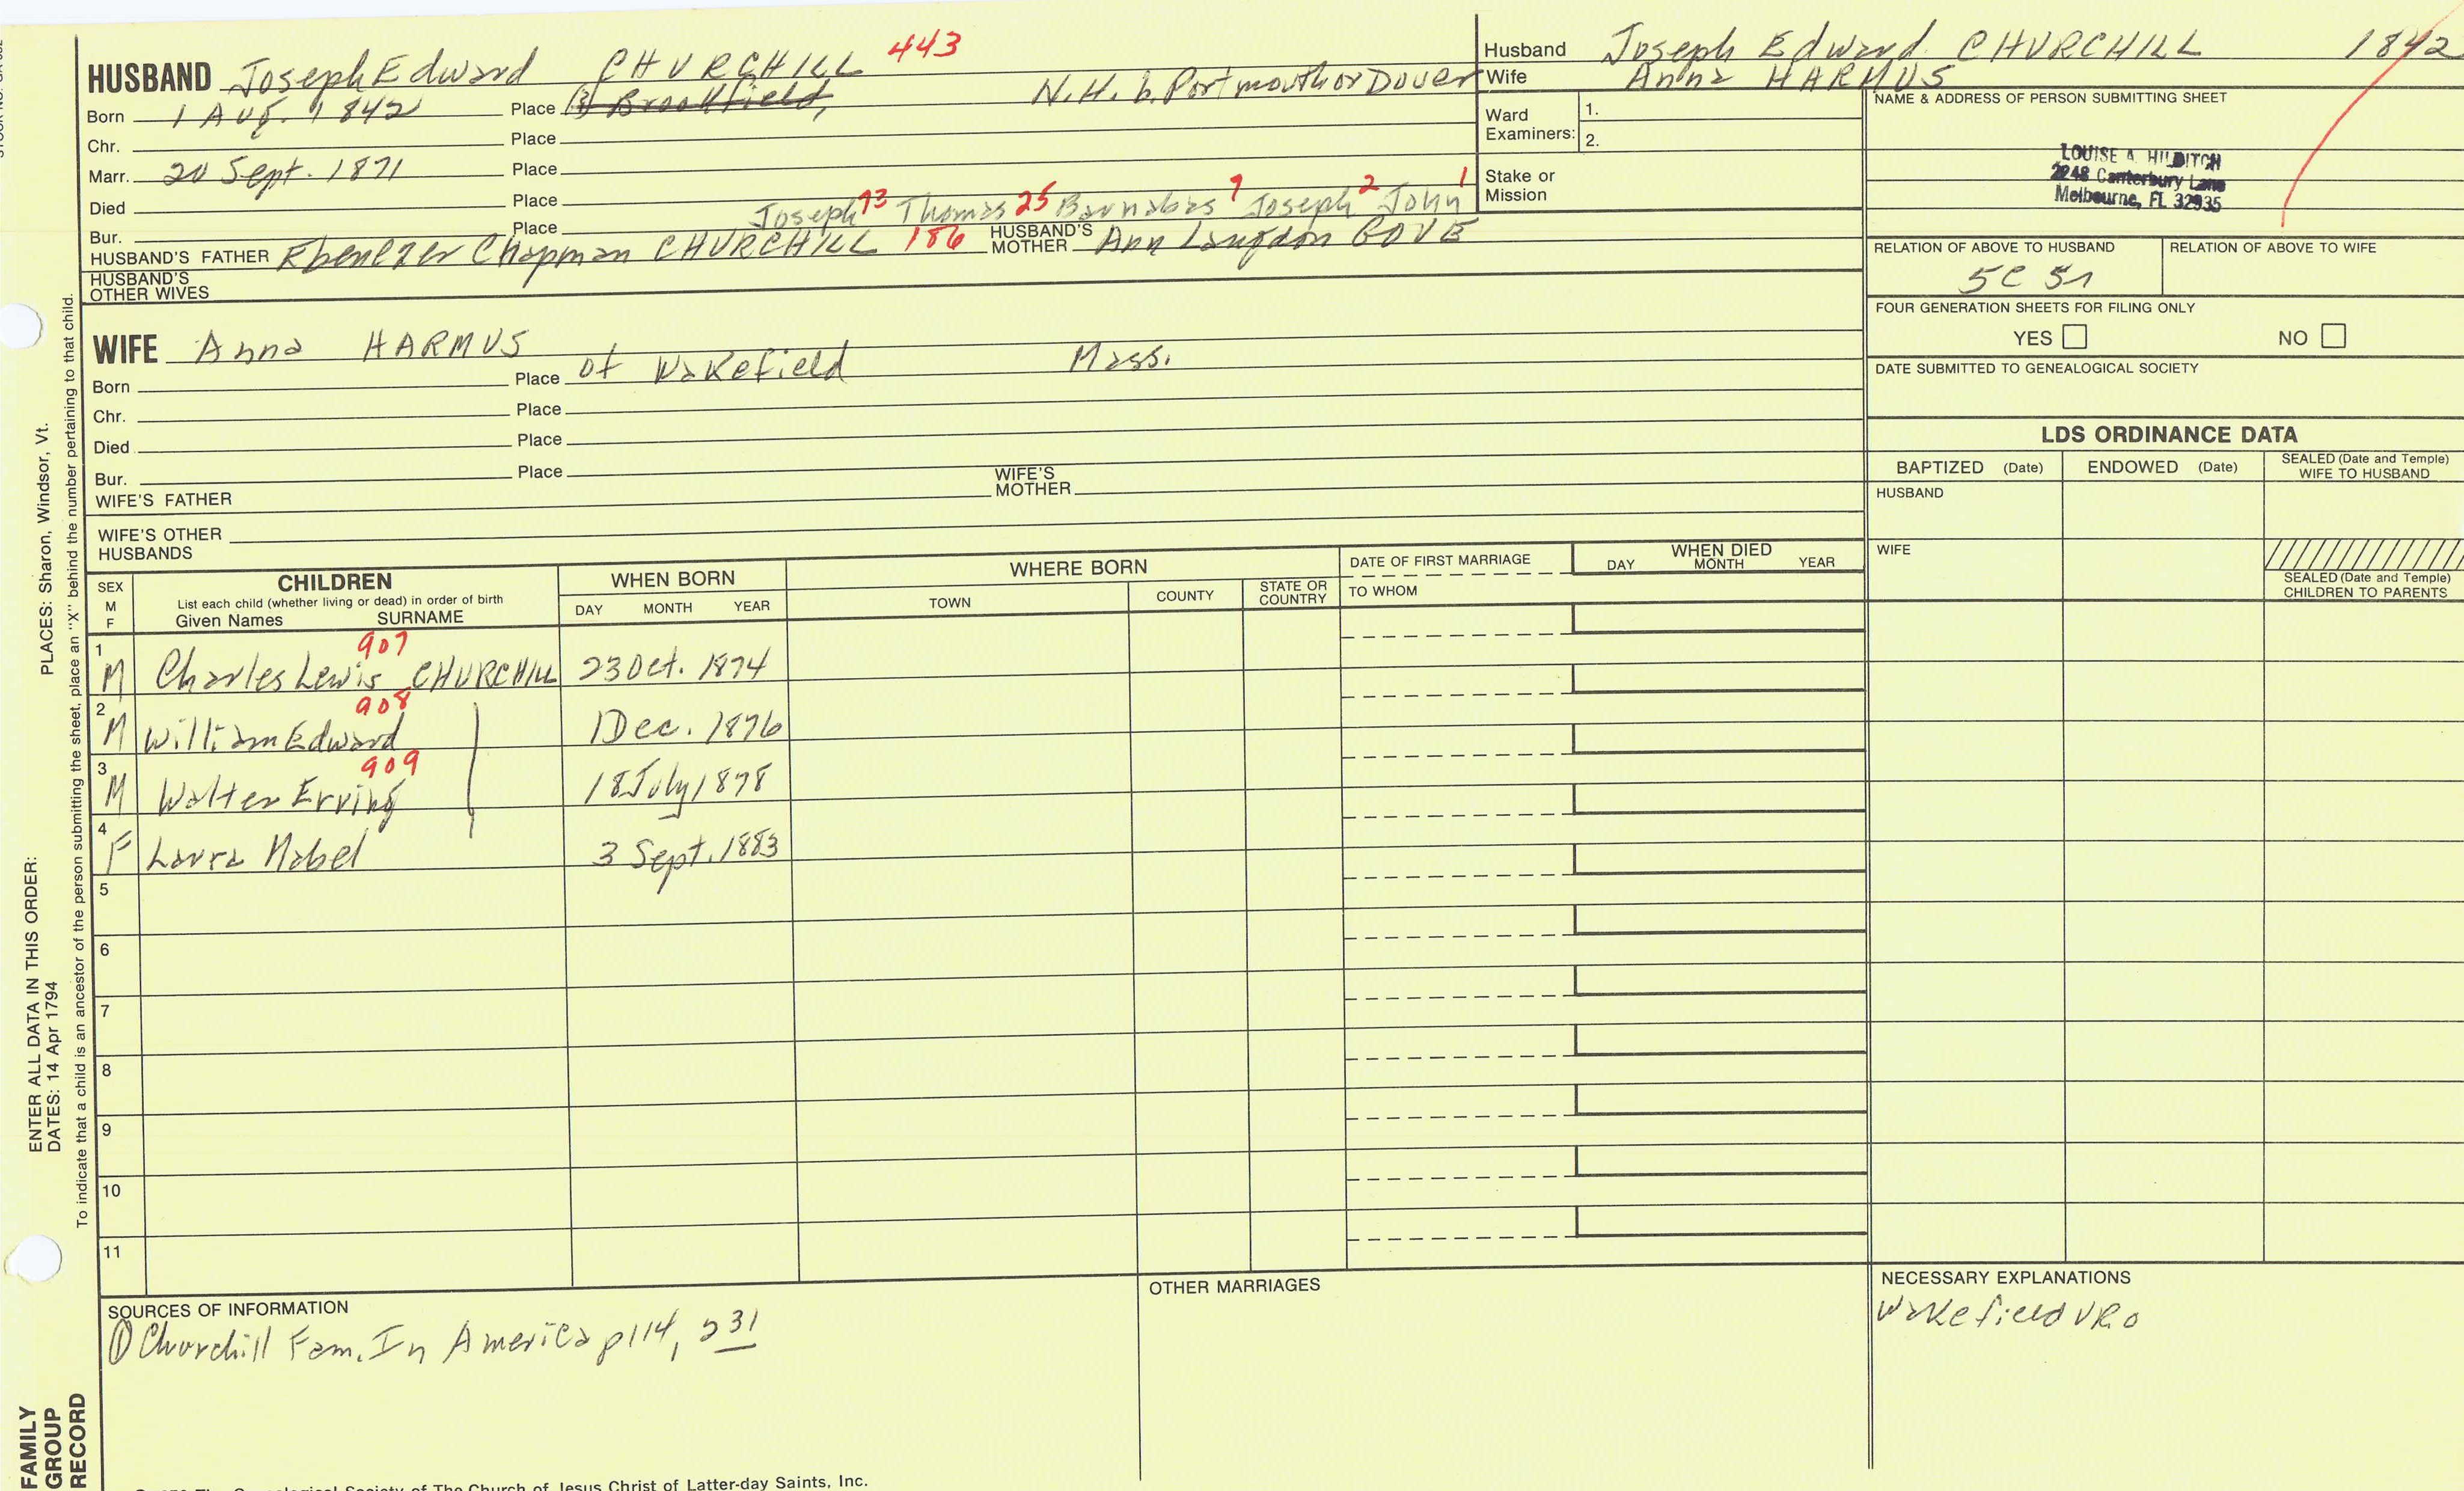 HUSBAND Joseph Edward CHURCHILL 443
Born 1 Aug. 1842 Place Brookfield, N.H. b. Portmouth or Dover
Chr. Place
Marr. 20 Sept. 1871 Place
Died Place
Joseph 73 Thomas 25 Barnabas 7 Joseph 2 John 1
Bur. Place
HUSBAND'S FATHER Ebenezer Chapman CHURCHILL 186 HUSBAND'S MOTHER Ann Langdon GOVE
HUSBAND'S OTHER WIVES
WIFE Anna HARMUS
Born Place of Wakefield Mass.
Chr. Place
Died Place
Bur. Place
WIFE'S FATHER WIFE'S MOTHER
WIFE'S OTHER HUSBANDS
Husband Joseph Edward CHURCHILL 1842
Wife Anna HARMUS
Ward Examiners: 1.
2.
Stake or Mission
NAME & ADDRESS OF PERSON SUBMITTING SHEET
LOUISE A. HILDITCH
2248 Canterbury Lane
Melbourne, FL 32935
RELATION OF ABOVE TO HUSBAND RELATION OF ABOVE TO WIFE
FOUR GENERATION SHEETS FOR FILING ONLY
YES NO
DATE SUBMITTED TO GENEALOGICAL SOCIETY
LDS ORDINANCE DATA
BAPTIZED (Date) ENDOWED (Date) SEALED (Date and Temple) WIFE TO HUSBAND
HUSBAND
WIFE
SEALED (Date and Temple) CHILDREN TO PARENTS
SEX M F
CHILDREN
List each child (whether living or dead) in order of birth
Given Names SURNAME
WHEN BORN
DAY MONTH YEAR
WHERE BORN
TOWN COUNTY STATE OR COUNTRY
DATE OF FIRST MARRIAGE
TO WHOM
WHEN DIED
DAY MONTH YEAR
907
1 M Charles Lewis CHURCHILL 23 Oct. 1874
908
2 M William Edward 1 Dec. 1876
909
3 M Walter Erving 18 July 1878
4 F Laura Mabel 3 Sept. 1883
5
6
7
8
9
10
11
SOURCES OF INFORMATION
① Churchill Fam. In America p114, 231
OTHER MARRIAGES
NECESSARY EXPLANATIONS
Wakefield VRO
The Church of Jesus Christ of Latter-day Saints, Inc.
FAMILY GROUP RECORD
ENTER ALL DATA IN THIS ORDER:
DATES: 14 Apr 1794
PLACES: Sharon, Windsor, Vt.
To indicate that a child is an ancestor of the person submitting the sheet, place an "X" behind the number pertaining to that child.